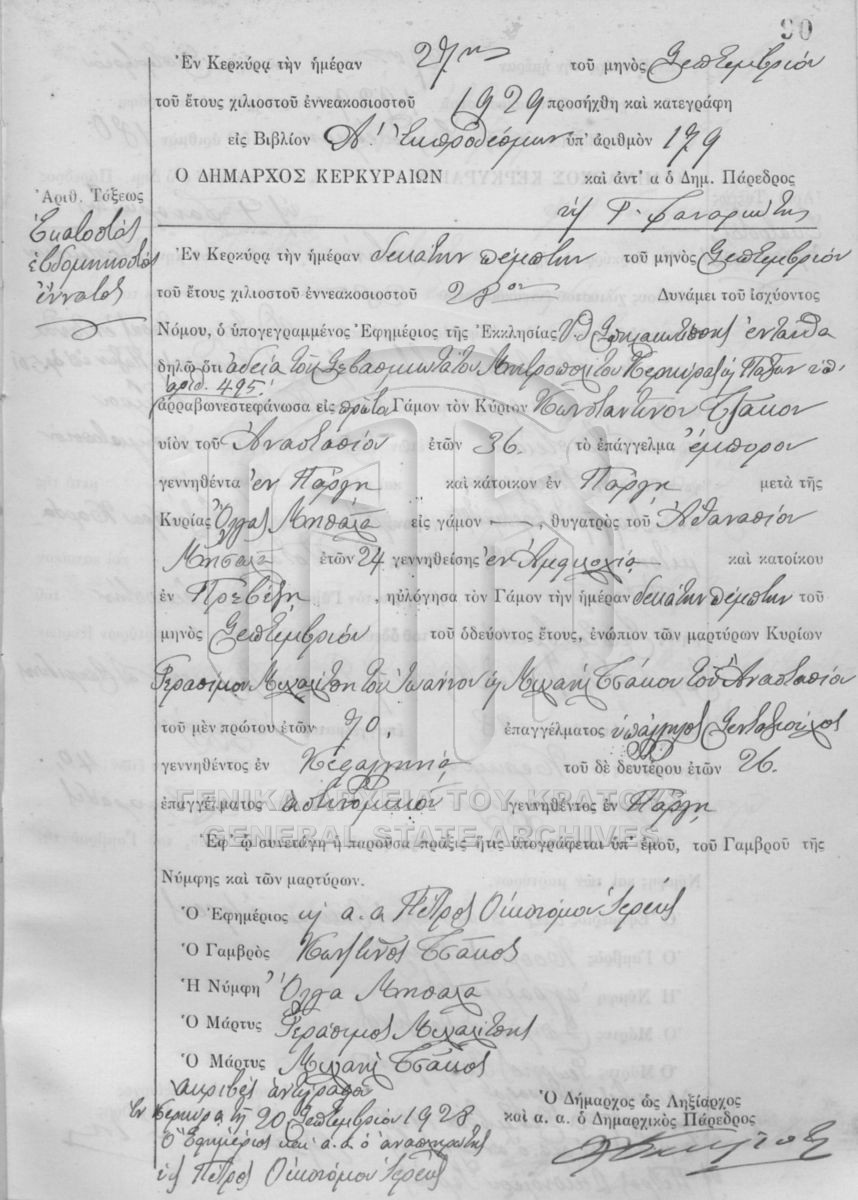 90
Ἐν Κερκύρᾳ τὴν ἡμέραν 27ην τοῦ μηνὸς Σεπτεμβρίου
τοῦ ἔτους χιλιοστοῦ ἐννεακοσιοστοῦ 1929 προσήχθη καὶ κατεγράφη
εἰς Βιβλίον Α. Ἐκπροθέσμων ὑπ' ἀριθμὸν 179
Ο ΔΗΜΑΡΧΟΣ ΚΕΡΚΥΡΑΙΩΝ καὶ ἀντ' α ὁ Δημ. Πάρεδρος
Γ. Φαναριώτης
Ἀριθ. Τάξεως
Ἑκατοστὸς
ἑβδομηκοστὸς
ἔννατος
Ἐν Κερκύρᾳ τὴν ἡμέραν δεκάτην πέμπτην τοῦ μηνὸς Σεπτεμβρίου
τοῦ ἔτους χιλιοστοῦ ἐννεακοσιοστοῦ 28ου Δυνάμει τοῦ ἰσχύοντος
Νόμου, ὁ ὑπογεγραμμένος Ἐφημέριος τῆς Ἐκκλησίας ἐνταῦθα
δηλῶ ὅτι ἀδείᾳ τοῦ Σεβασμιωτάτου Μητροπολίτου Κερκύρας ϗ Παξῶν ὑπ'
ἀριθ. 495
ἀρραβωνεστεφάνωσα εἰς πρῶτον Γάμον τὸν Κύριον Κωνσταντῖνον Τζάκον
υἱὸν τοῦ Ἀναστασίου ἐτῶν 36 τὸ ἐπάγγελμα ἔμπορον
γεννηθέντα ἐν Πάργῃ καὶ κάτοικον ἐν Πάργῃ μετὰ τῆς
Κυρίας Ὄλγας Μπησαλᾶ εἰς γάμον —, θυγατρὸς τοῦ Ἀθανασίου
ἐτῶν 24 γεννηθείσης ἐν Ἀμφιλοχίᾳ καὶ κατοίκου
ἐν Πρεβέζῃ, ηὐλόγησα τὸν Γάμον τὴν ἡμέραν δεκάτην πέμπτην τοῦ
μηνὸς Σεπτεμβρίου τοῦ ὁδεύοντος ἔτους, ἐνώπιον τῶν μαρτύρων Κυρίων
Γερασίμου Μιχαλίτση τοῦ Ἰωάννου ϗ Μιχαὴλ Τσάκου τοῦ Ἀναστασίου
τοῦ μὲν πρώτου ἐτῶν 70, ἐπαγγέλματος συνταξιούχος
γεννηθέντος ἐν Κεφαλληνίᾳ τοῦ δὲ δευτέρου ἐτῶν 26.
ἐπαγγέλματος ἀστυνομικοῦ γεννηθέντος ἐν Πάργῃ
ΓΕΝΙΚΑ ΑΡΧΕΙΑ ΤΟΥ ΚΡΑΤΟΥΣ
GENERAL STATE ARCHIVES
Ἐφ' ᾧ συνετάγη ἡ παροῦσα πρᾶξις ἥτις ὑπογράφεται ὑπ' ἐμοῦ, τοῦ Γαμβροῦ τῆς
Νύμφης καὶ τῶν μαρτύρων.
Ὁ Ἐφημέριος ϗ α.α Πέτρος Οἰκονόμου Ἱερεύς
Ὁ Γαμβρὸς Κωνστῖνος Τζάκος
Ἡ Νύμφη Ὄλγα
Ὁ Μάρτυς Γεράσιμος Μιχαλίτσης
Ὁ Μάρτυς Μιχαὴλ Τσάκος
Ἀκριβὲς ἀντίγραφον
Ἐν Κερκύρᾳ τῇ 20 Σεπτεμβρίου 1928
Ὁ Ἐφημέριος καὶ α.α ὁ ἀναπληρωτὴς
Πέτρος Οἰκονόμου Ἱερεύς
Ὁ Δήμαρχος ὡς Ληξίαρχος
καὶ α. α. ὁ Δημαρχικὸς Πάρεδρος